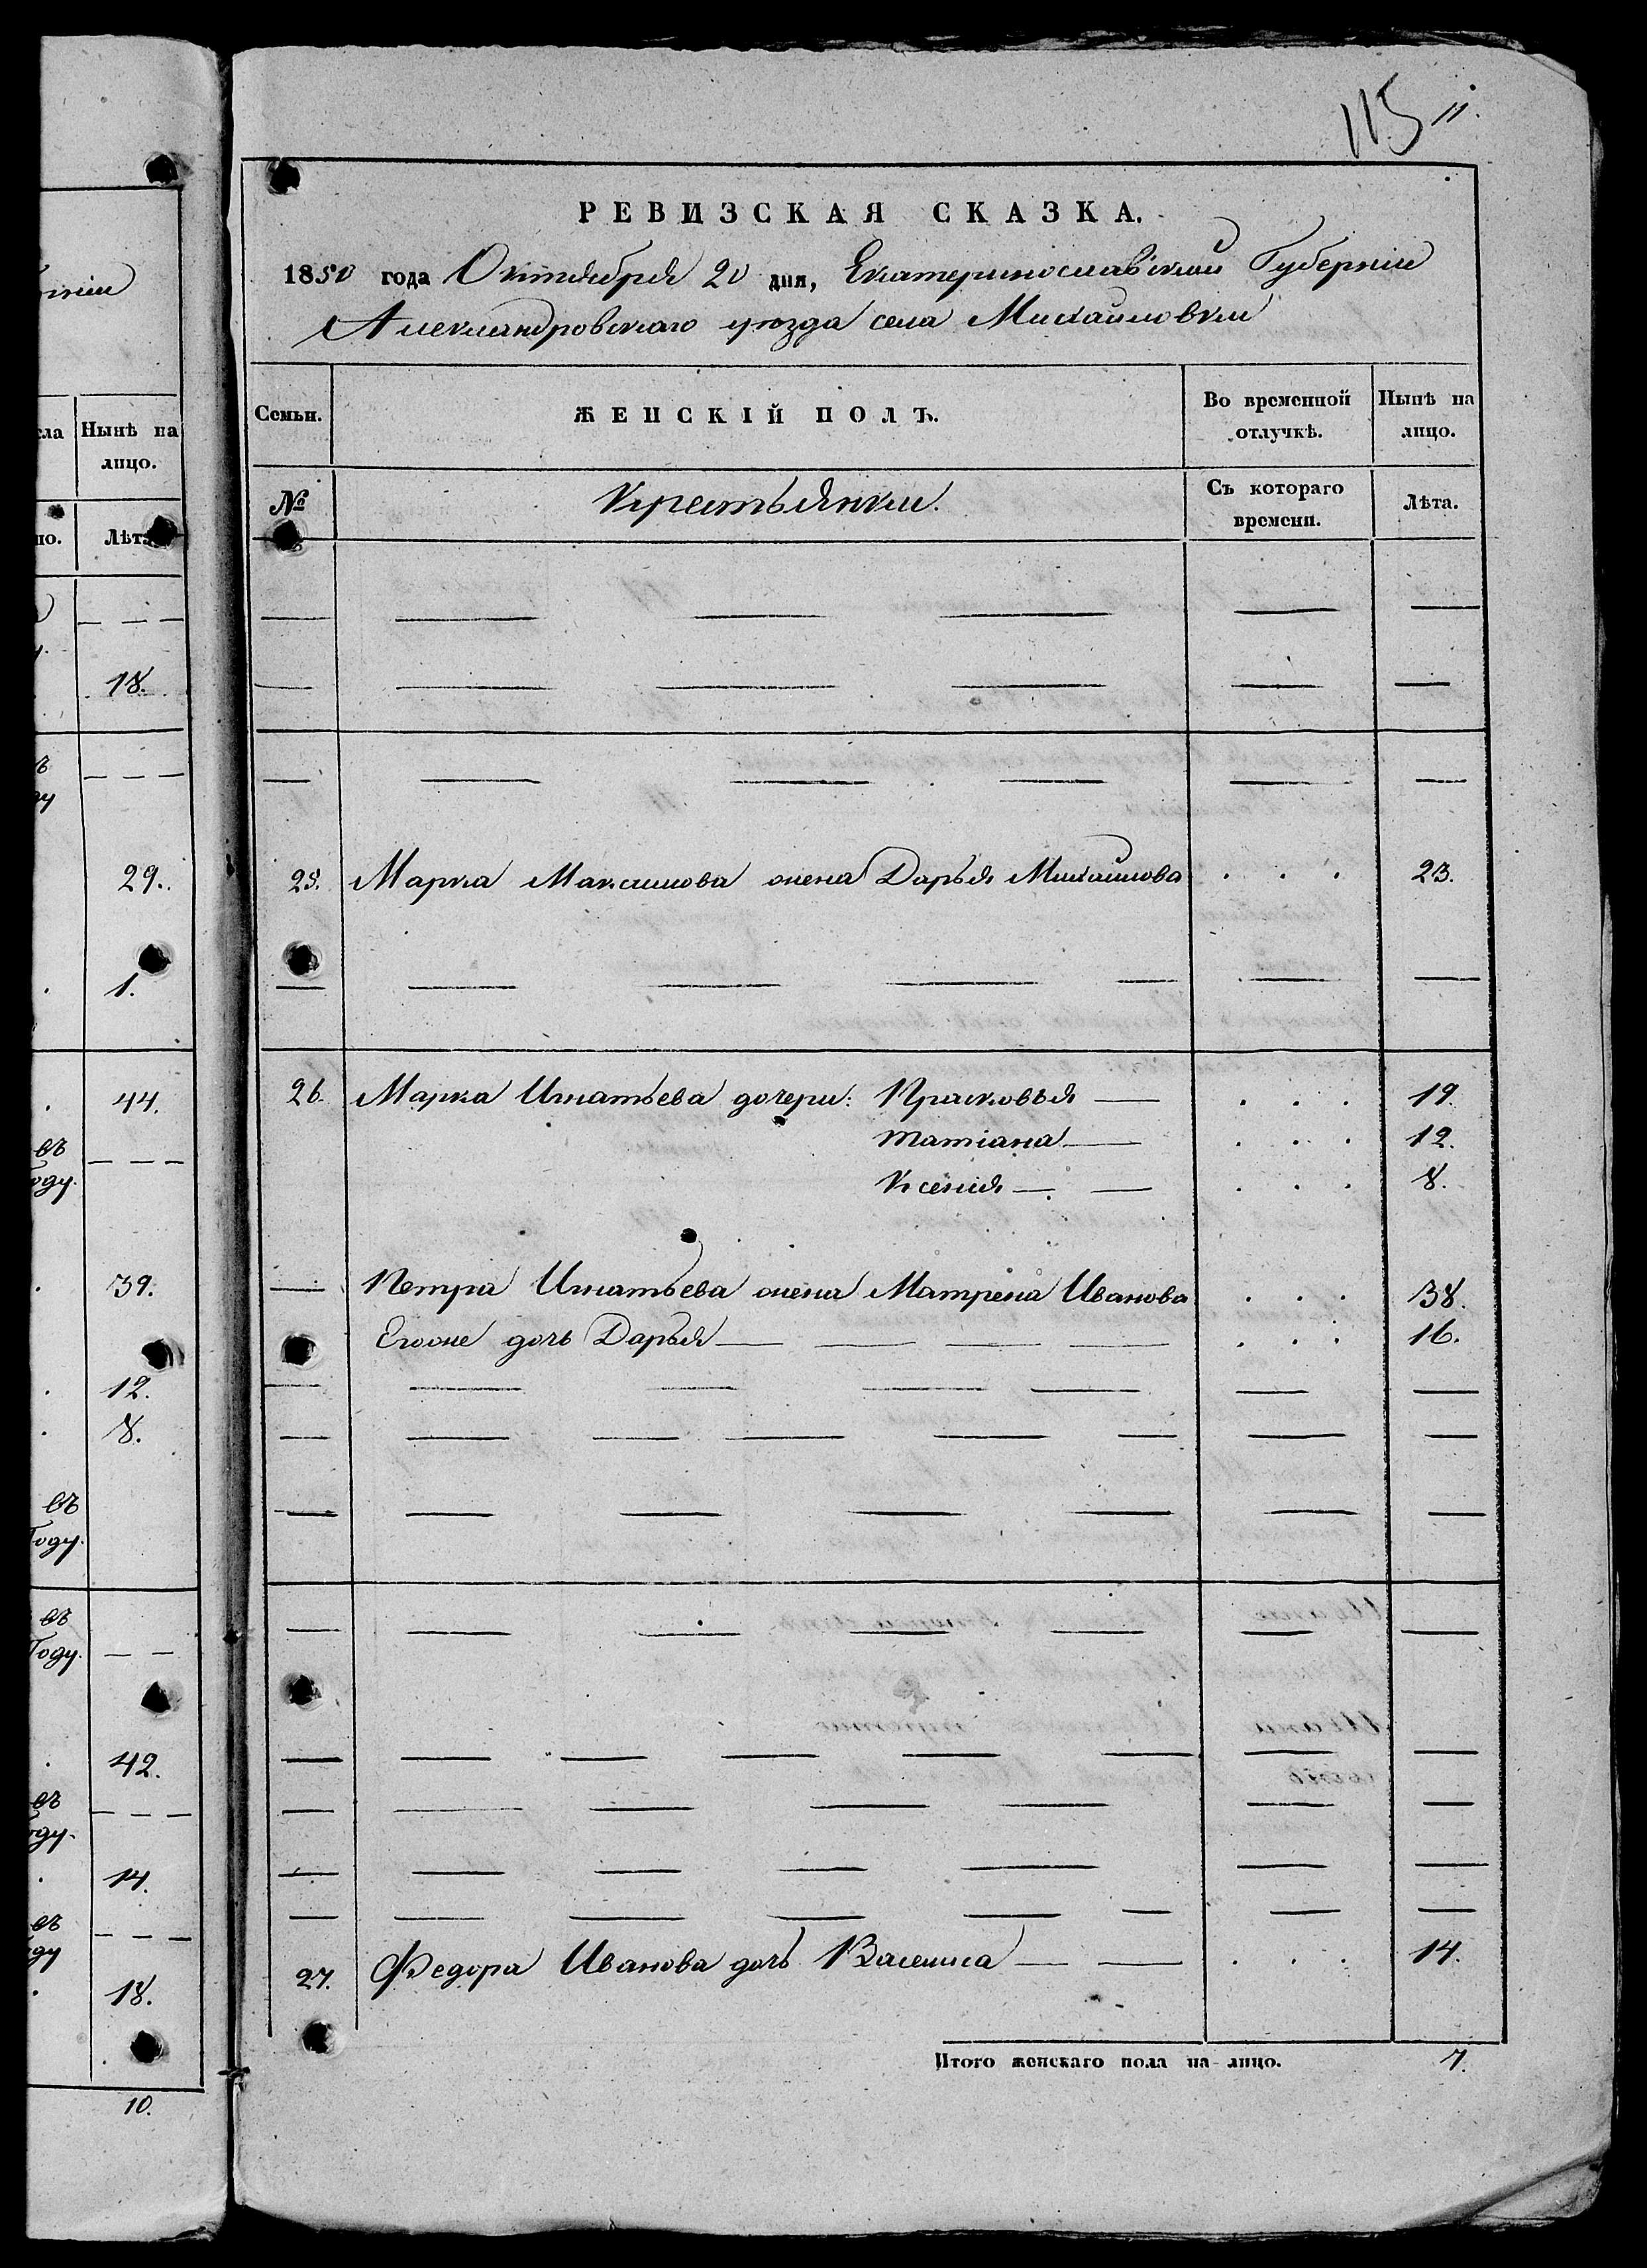 нiи
сла Нынѣ на
лицо.
но. Лѣта
18.
29.
1.
44.
въ
году.
39.
12.
8.
въ
Году.
въ
Году.
42.
въ
году.
14.
въ
году
18.
10.
115 11.
РЕВИЗСКАЯ СКАЗКА.
1850 года Октября 20 дня, Екатеринославской Губернiи
Александровскаго уѣзда села Михайловки
Семьи. ЖЕНСКIЙ ПОЛЪ. Во временной Нынѣ на
отлучкѣ. лицо.
№ Крестьянки. Съ котораго Лѣта.
времени.
25. Марка Максимова жена Дарья Михайлова . . . 23.
26. Марка Игнатьева дочери: Прасковья — . . . 19.
Татiана — . . . 12.
Ксенiя — — . . . 8.
— Петра Игнатьева жена Матрена Иванова . . . 38.
Егоже дочь Дарья — — — — . . . 16.
27. Федора Иванова дочь Василиса — — . . . 14.
Итого женскаго пола на-лицо. 7.